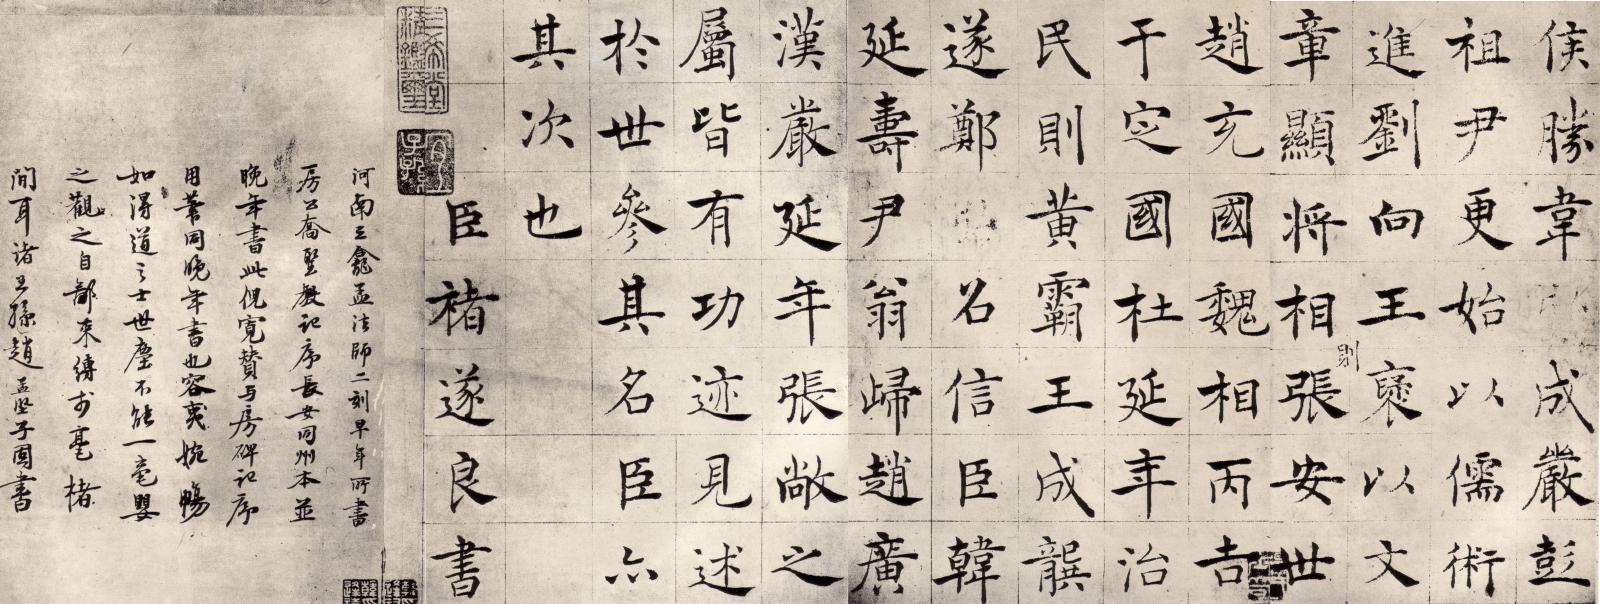 侯勝韋成嚴彭
祖尹更始以儒術
進劉向王襃以文
則
章顯將相張安世
趙充國魏相丙吉
于定國杜延年治
民則黃霸王成龔
遂鄭召信臣韓
延壽尹翁歸趙廣
漢嚴延年張敞之
屬皆有功迹見述
於世參其名臣亦
其次也
臣褚遂良書
三希堂
精鑑璽
宜
子孫
河南三龕孟法師二刻早年所書
房公喬聖教記序長安同州本並
晚年書此倪寬贊与房碑記序
用筆同晚年書也容夷婉暢
如得道之士世塵不能一毫嬰
之觀之自鄙束縛於毫楮
間耳諸王孫趙孟堅子固書